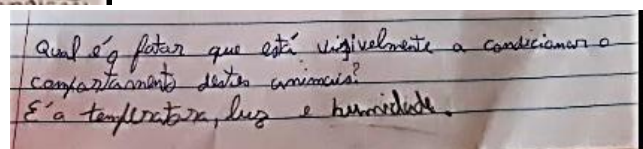 Qual é q fatar que está vigivelmente a condicionar o
compartamento destes animais?
É a temperatura, luz e humidade.